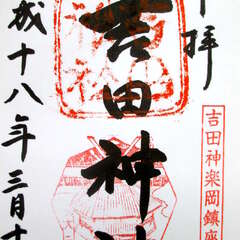 拝
吉田神楽岡鎮座
吉田神社
成十八年三月十